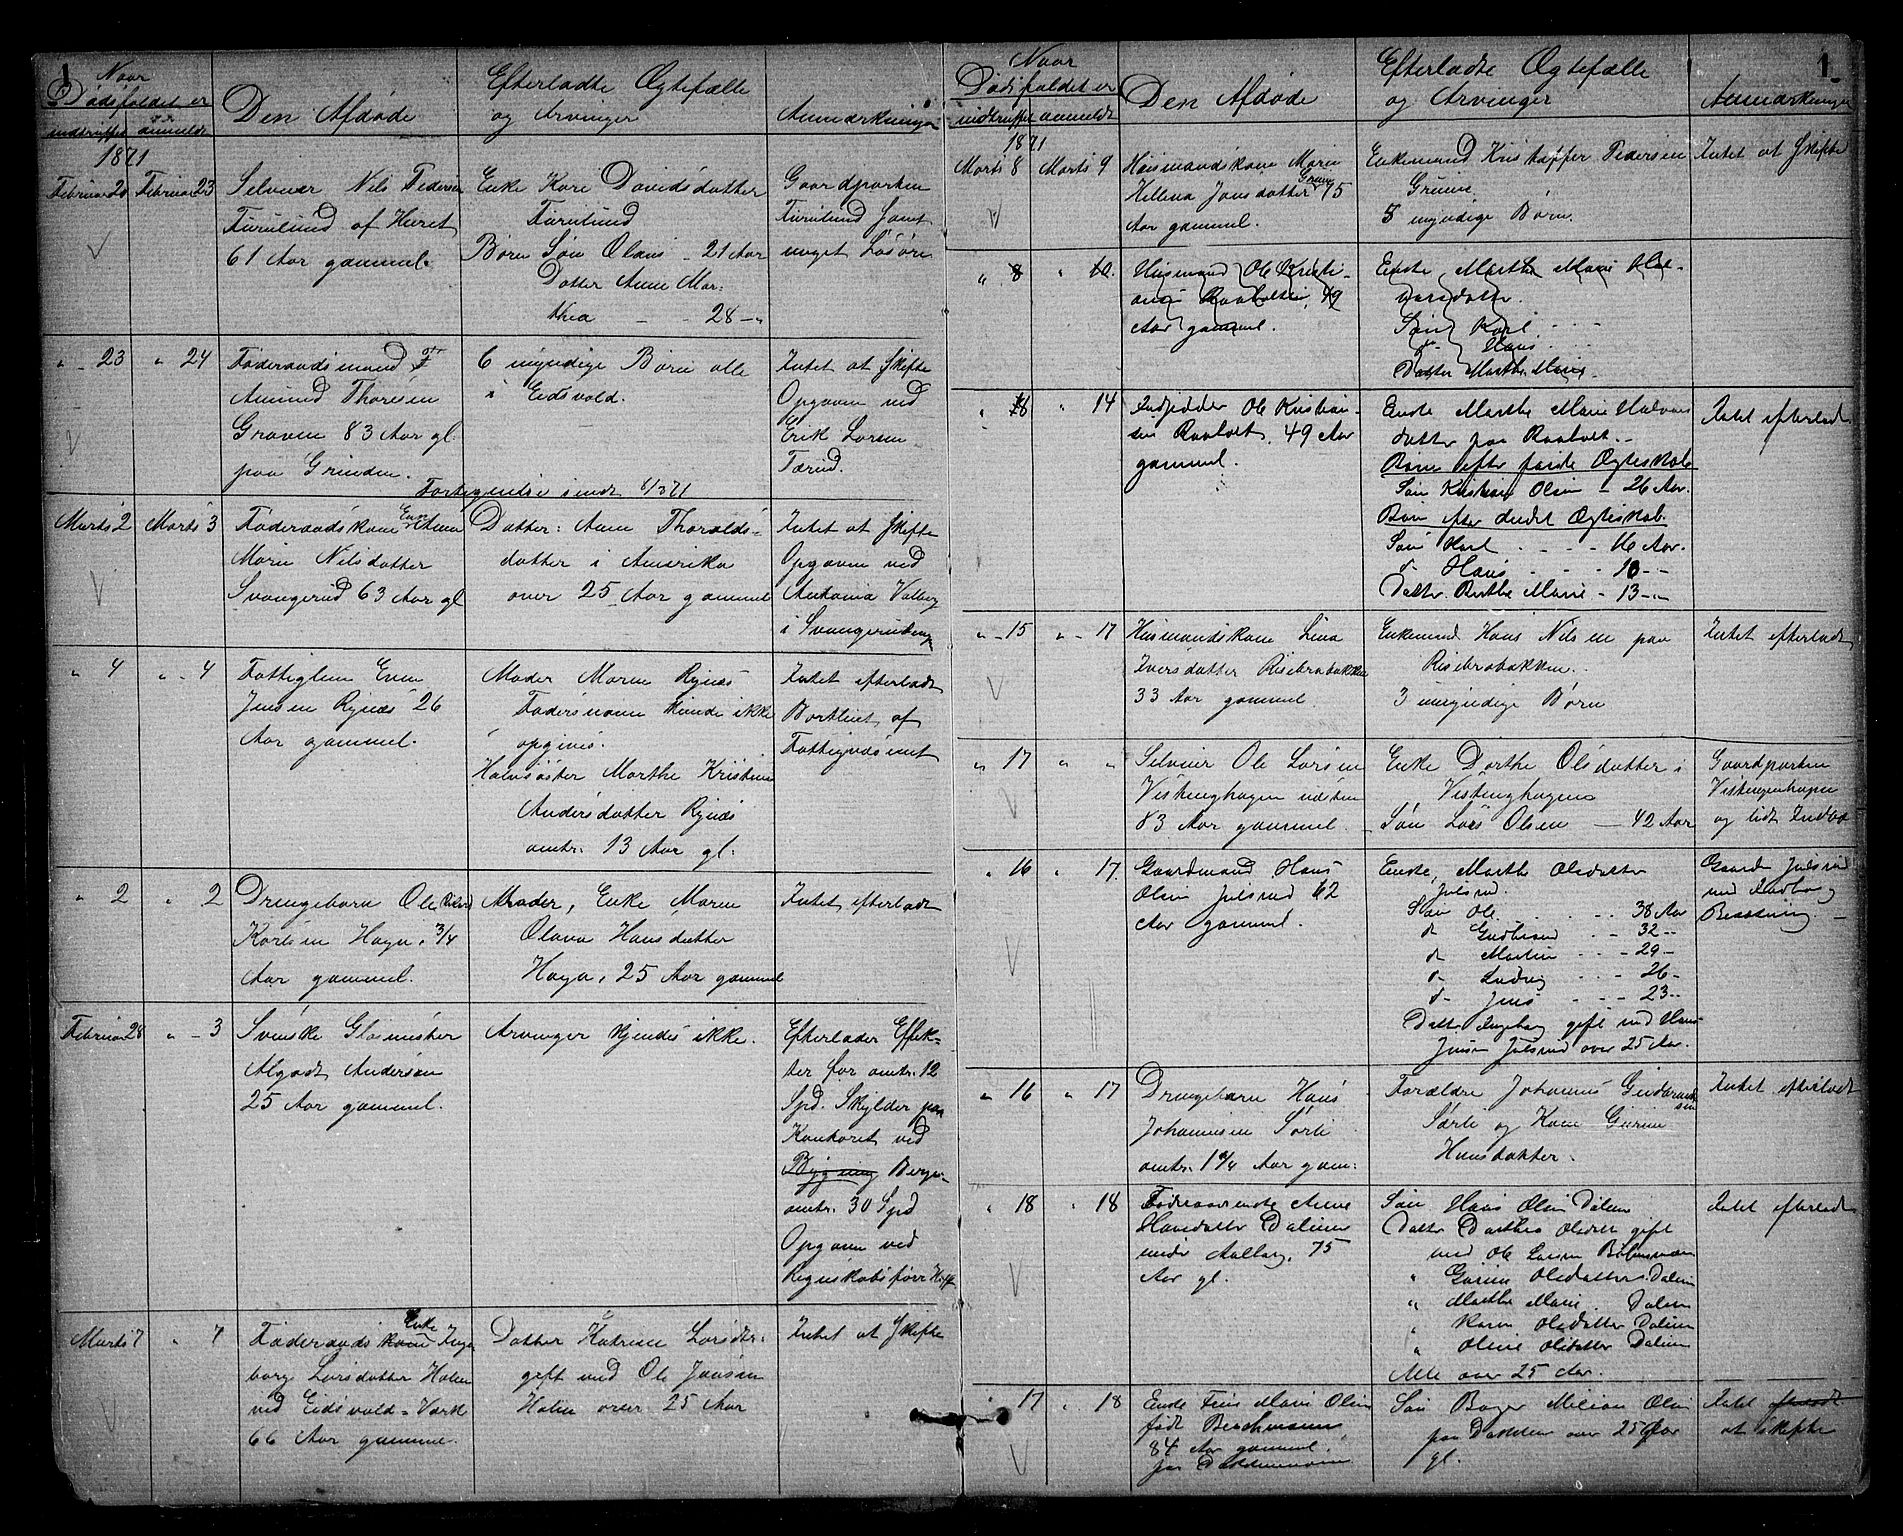 1
Naar
Dødsfaldet er
indtruffet anmeldt
Den Afdøde
Efterladte Ægtefælle
og Arvinger
Anmærkninger
1871
Februar 20 Februar 23
Selveier Nils Pedersen
Furulund af Huret
61 Aar gammel.
Enke Kari Davidsdatter
Furulund
Børn Søn Olaus - 21 Aar
Datter Anne Mar-
thea - - 28 - "
Gaardparten
Furulund samt
noget Løsøre
" - 23 " 24
Føderaadsmand
Amund Thoresen
Graven 83 Aar gl.
paa Grinden.
6 myndige Børn alle
i Eidsvold.
Intet at Skifte
Opgaven ved
Erik Larsen
Tærud.
Fortegnelse sendt 8/3 71
Marts 2 Marts 3
Føderaadskone Enke Anne
Marie Nilsdatter
Svangerud 63 Aar gl
Datter: Anne Thoralds-
datter i Amerika
over 25 Aar gammel
Intet at Skifte
Opgaven ved
Antonia Valberg
i
" 4 " - 4
Fattiglem Even
Jensen Rynæs 26
Aar gammel.
Moder Maren Rynæs
Faders navn kunde ikke
opgives.
Halvsøster Marthe Kristine
Andersdatter Rynæs
omtr. 13 Aar gl.
Intet efterladt
Bortlicit af
Fattigvæsenet
" 2 " 2
Drengebarn Ole
Karlsen Haga, 3/4
Aar gammel.
Moder, Enke Maren
Olava Hansdatter
Haga, 25 Aar gammel
Intet efterladt
Februar 28 " - 3
Svenske Glasmester
Algodt Andersen
25 Aar gammel.
Arvinger kjendes ikke.
Efterlader Effek-
ter for omtr. 12
Spd. Skylder paa
Kontoret ved
Bygning Berge
omtr. 30 Spd
Opgaven ved
Regnskabsfører
Marts 7 " 7
Enke
Føderaadskone Inge-
borg Larsdatter Holm
ved Eidsvold-Værk
66 Aar gammel.
Datter Katrine Larsdtr.
gift med Ole Jansen
Holm over 25 Aar
Intet at Skifte
1
Naar
Dødsfaldet er
indtruffet anmeldt
Den Afdøde
Efterladte Ægtefælle
og Arvinger
Anmærkninger
1871
Marts 8 Marts 9
Husmandskone Marie
Hellena Jonsdatter Gruve 75
Aar gammel.
Enkemand Kristoffer Pedersen
Gruve
8 myndige Børn.
Intet at Skifte
" 8 " 10.
Husmand Ole Kristi-
ansen Raaholtet, 49
Aar gammel.
Enke, Marthe Marie Hal-
vorsdatter.
Søn Karl - - -
do Hans - - -
Datter Marthe Marie -
" 8 " 14
Indsidder Ole Kristian-
sen Raaholt, 49 Aar
gammel.
Enke Marthe Marie Halvors
datter paa Raaholt.
Børn efter første Ægteskab
Søn Kristian Olsen - 26 Aar.
Børn efter andet Ægteskab.
Søn Karl - - - 16 Aar.
do Hans - - - 10 - -
Datter Berthe Marie - 13 - "
Intet efterladt
" - 15 " - 17
Husmandskone Lina
Iversdatter Risebrobakken
33 Aar gammel.
Enkemand Hans Nilsen paa
Risebrobakken.
3 umyndige Børn
Intet efterladt
" 17 " "
Selveier Ole Larsen
Vistinghagen
83 Aar gammel.
Enke Dorthe Olsdatter i
Vistinghagen
Søn Lars Olsen - 42 Aar
Gaardparten
Vistingenhagen
og lidt Indbo
" 16 " 17
Gaardmand Hans
Olsen Julsrud 62
Aar gammel.
Enke, Marthe Olsdatter
Julsrud.
Søn Ole - - - 38 Aar
do Gudbrand - - 32 - -
do Martin - - - 29 -
do Ludvig - - - 26 -
do Jens - - - 23 - -
Datter Ingeborg gift med Hans
Jensen Julsrud over 25 Aar.
Gaarden Julsrud
med Indbo og
Besætning -
" 16 " 17
Drengebarn Hans
Johannesen Sørli
omtr. 1 3/4 Aar gam:
Forældre Johannes Gudbrand
sen
Sørli og Kone Gurine
Hansdatter.
Intet efterladt
" 18 " 18
Føderaadsenke Anne
Hansdatter Dalen
under Aalborg, 75
Aar gl.
Søn Hans Olsen Dalen
Datter Dorthea Olsdtr gift
med Ole Larsen
" Gurine Olsdatter Dalen
" Marthe Marie Dalen
" Karen Olsdatter Dalen
" Oline Olsdatter Dalen
Alle over 25 Aar.
Intet efterladt
" 17 " 18
Enke Marie Olsen
født
84 Aar gammel.
paa
Søn Olsen
paa over 25 Aar
gl.
Intet efterladt
at skifte